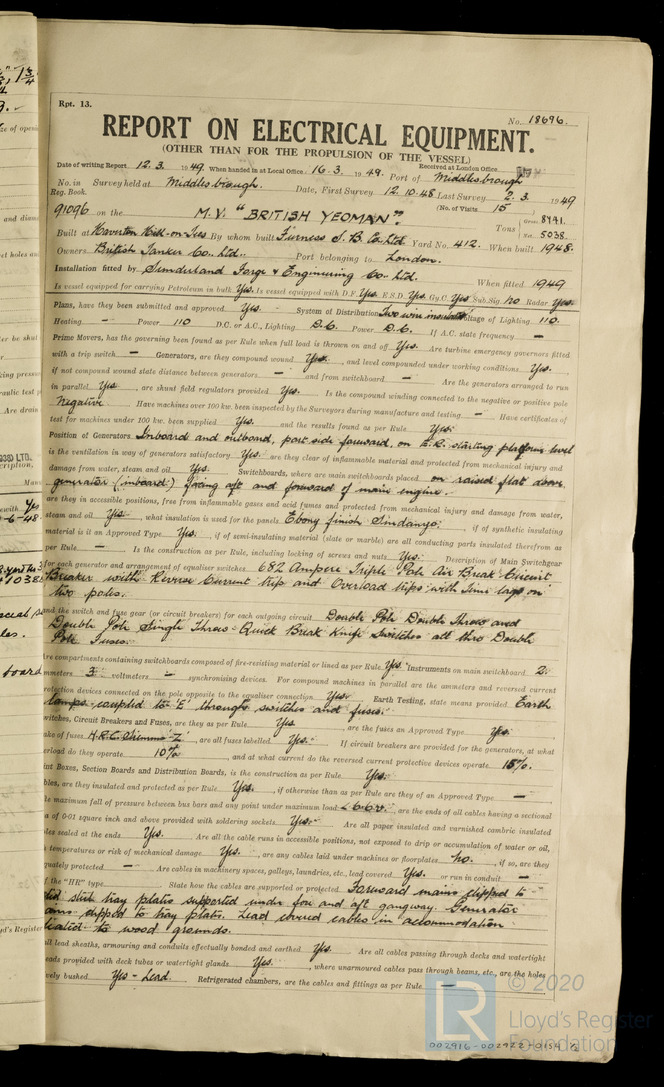 Rpt. 13.
No. 18696.
REPORT ON ELECTRICAL EQUIPMENT.
(OTHER THAN FOR THE PROPULSION OF THE VESSEL)
Received at London Office
Date of writing Report 12.3. 1949. When handed in at Local Office 16.3 1949. Port of Middlesbrough
No. in Survey held at Middlesbrough. Date, First Survey 12.10.48 Last Survey 2.3. 1949
Reg. Book. (No. of Visits 15)
91096 on the M.V. "BRITISH YEOMAN". Tons Gross 8741.
Net 5038.
Built at Haverton Hill-on-Tees By whom built Furness S.B. Co. Ltd. Yard No. 412. When built 1948.
Owners British Tanker Co. Ltd. Port belonging to London.
Installation fitted by Sunderland Forge & Engineering Co. Ltd. When fitted 1949
Is vessel equipped for carrying Petroleum in bulk Yes. Is vessel equipped with D.F. Yes. E.S.D. Yes. Gy.C. Yes Sub.Sig. No Radar Yes.
Plans, have they been submitted and approved Yes. System of Distribution Two wire insulated Voltage of Lighting 110.
Heating — Power 110 D.C. or A.C., Lighting D.C. Power D.C. If A.C. state frequency —
Prime Movers, has the governing been found as per Rule when full load is thrown on and off Yes. Are turbine emergency governors fitted
with a trip switch — Generators, are they compound wound Yes. and level compounded under working conditions Yes.
if not compound wound state distance between generators — and from switchboard — Are the generators arranged to run
in parallel Yes, are shunt field regulators provided Yes. Is the compound winding connected to the negative or positive pole
Negative Have machines over 100 kw. been inspected by the Surveyors during manufacture and testing — Have certificates of
test for machines under 100 kw. been supplied Yes. and the results found as per Rule Yes.
Position of Generators. Inboard and outboard, port side forward, on E.R. starting platform level
is the ventilation in way of generators satisfactory Yes. are they clear of inflammable material and protected from mechanical injury and
damage from water, steam and oil Yes. Switchboards, where are main switchboards placed on raised flat above
generator (inboard) facing aft and forward of main engine.
are they in accessible positions, free from inflammable gases and acid fumes and protected from mechanical injury and damage from water,
steam and oil Yes., what insulation is used for the panels Ebony finish Sindanyo., if of synthetic insulating
material is it an Approved Type Yes., if of semi-insulating material (slate or marble) are all conducting parts insulated therefrom as
per Rule — Is the construction as per Rule, including locking of screws and nuts Yes. Description of Main Switchgear
for each generator and arrangement of equaliser switches 682 Ampere Triple Pole Air Break Circuit
Breaker with Reverse Current trip and Overload trips with Time lags on
two poles.
and the switch and fuse gear (or circuit breakers) for each outgoing circuit Double Pole Double Throw and
Double Pole Single Throw Quick Break Knife Switches all thro Double
Pole Fuses.
Are compartments containing switchboards composed of fire-resisting material or lined as per Rule Yes. Instruments on main switchboard 2.
mmeters 3. voltmeters — synchronising devices. For compound machines in parallel are the ammeters and reversed current
rotection devices connected on the pole opposite to the equaliser connection Yes. Earth Testing, state means provided Earth
lamps coupled to 'E' through switches and fuses.
witches, Circuit Breakers and Fuses, are they as per Rule Yes, are the fuses an Approved Type Yes.
ake of fuses H.R.C. 'Z', are all fuses labelled Yes. If circuit breakers are provided for the generators, at what
erload do they operate 10%, and at what current do the reversed current protective devices operate 15%.
int Boxes, Section Boards and Distribution Boards, is the construction as per Rule Yes.
bles, are they insulated and protected as per Rule Yes., if otherwise than as per Rule are they of an Approved Type —
te maximum fall of pressure between bus bars and any point under maximum load < 6.6v., are the ends of all cables having a sectional
a of 0·01 square inch and above provided with soldering sockets Yes. Are all paper insulated and varnished cambric insulated
les sealed at the ends Yes. Are all the cable runs in accessible positions, not exposed to drip or accumulation of water or oil,
temperatures or risk of mechanical damage Yes., are any cables laid under machines or floorplates No., if so, are they
quately protected — Are cables in machinery spaces, galleys, laundries, etc., lead covered Yes. or run in conduit —
f the "HR" type State how the cables are supported or protected Forward mains clipped to
steel tray plates supported under fore and aft gangway. Generator
clipped to tray plate. Lead covered cables in accommodation
to wood grounds.
all lead sheaths, armouring and conduits effectually bonded and earthed Yes. Are all cables passing through decks and watertight
eads provided with deck tubes or watertight glands Yes., where unarmoured cables pass through beams, etc., are the holes
vely bushed Yes - Lead. Refrigerated chambers, are the cables and fittings as per Rule. —
© 2020
Lloyd's Register
Foundation
LR
002916-002922-0154 ½